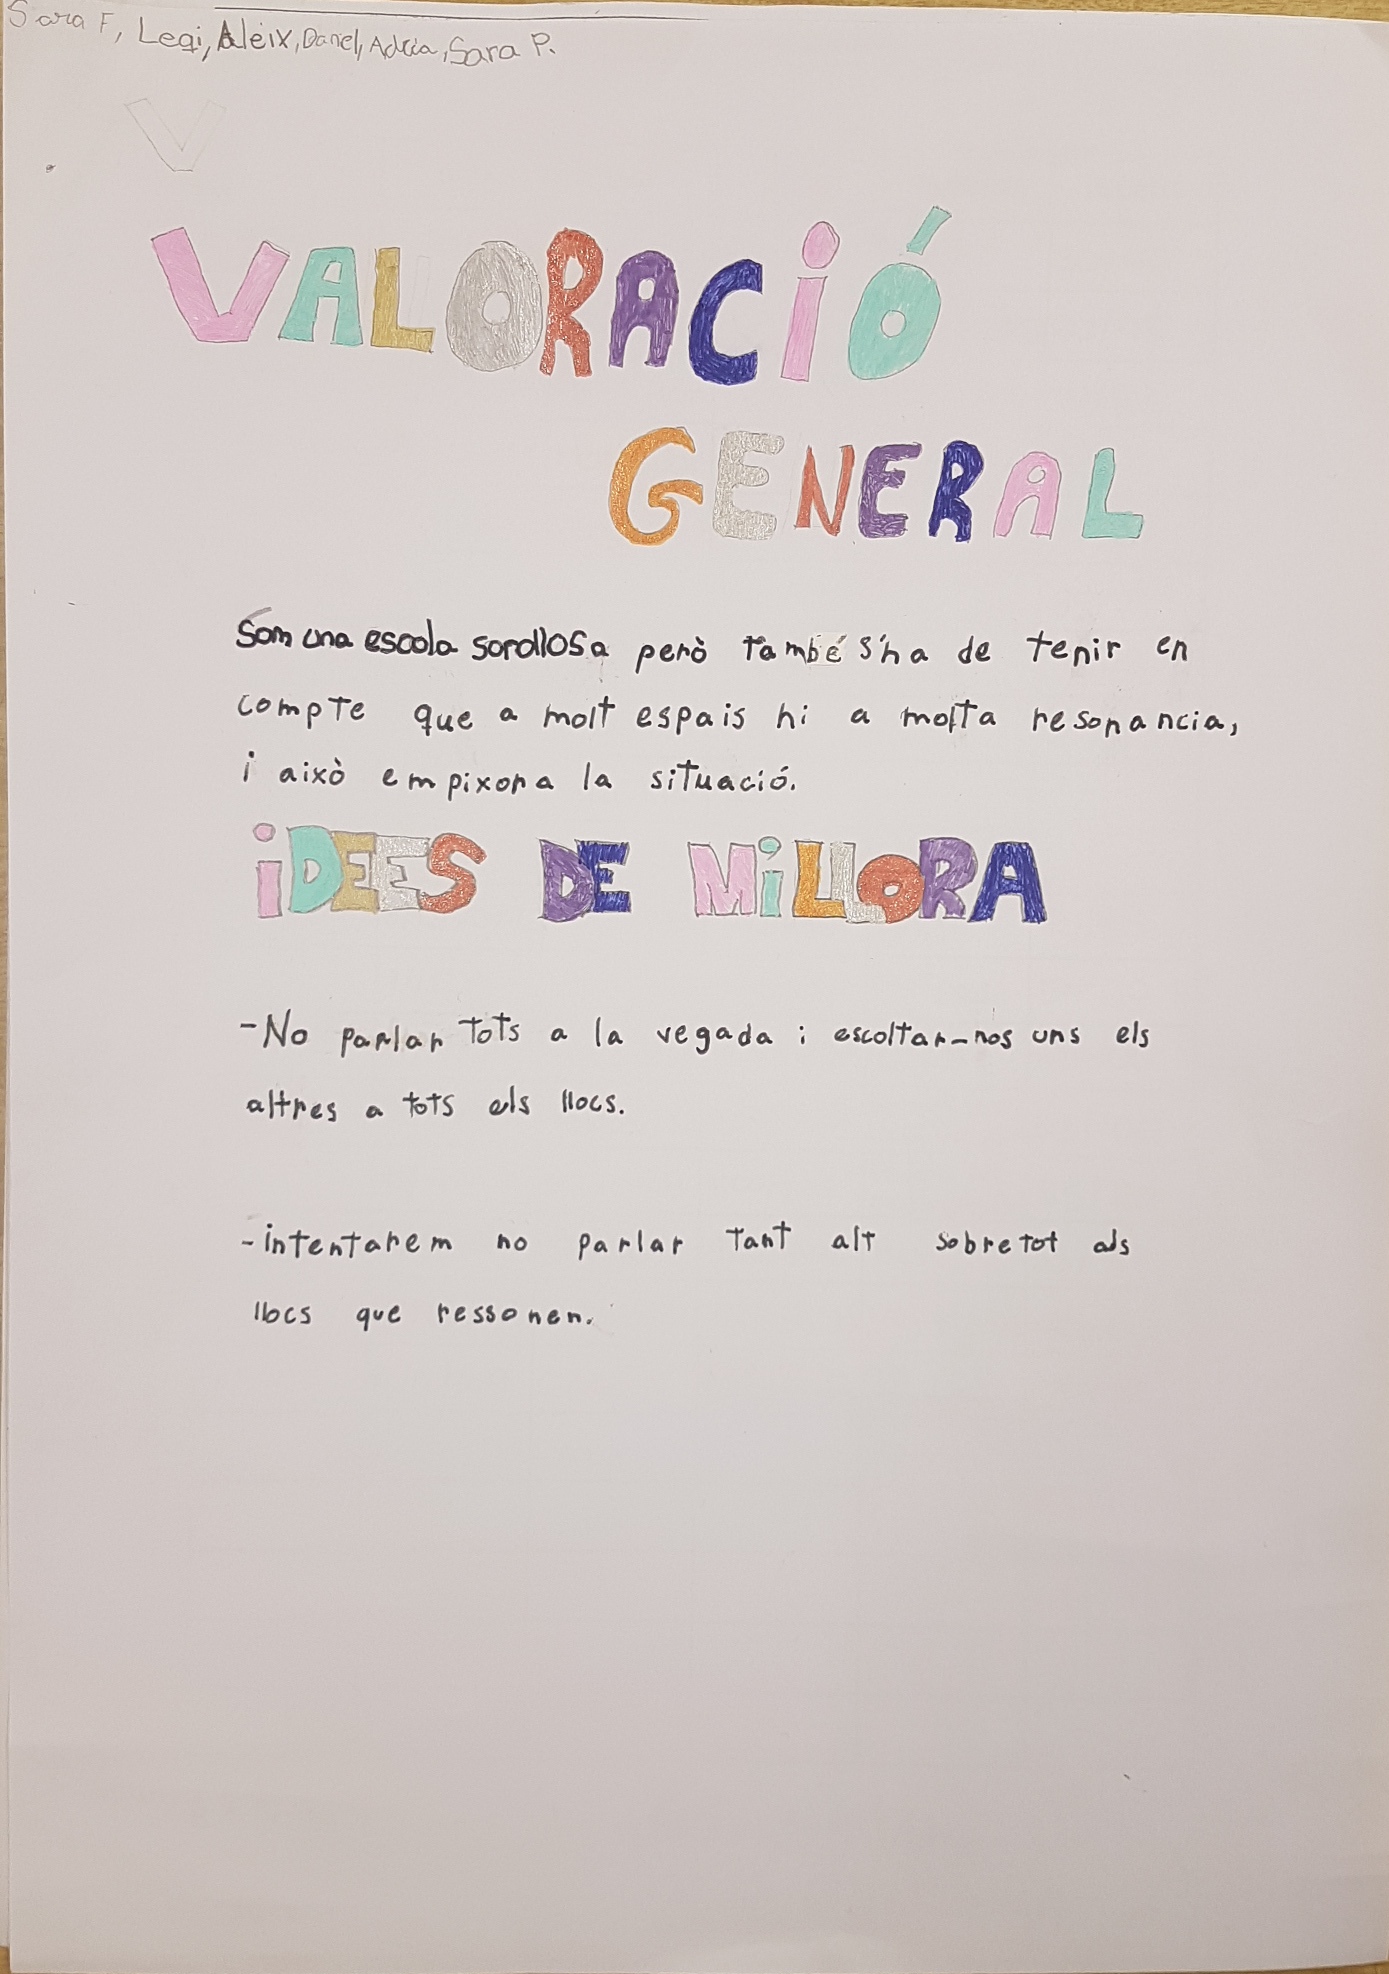 Sara F, Leqi, Aleix, Daniel, Adrià, Sara P.
V
VALORACIÓ
GENERAL
Som una escola sorollosa però també s'ha de tenir en
compte que a molt espais hi a molta resonancia,
i això empixora la situació.
iDEES DE MiLLORA
-No parlar tots a la vegada i escoltar-nos uns els
altres a tots els llocs.
-intentarem no parlar tant alt sobretot als
llocs que ressonen.